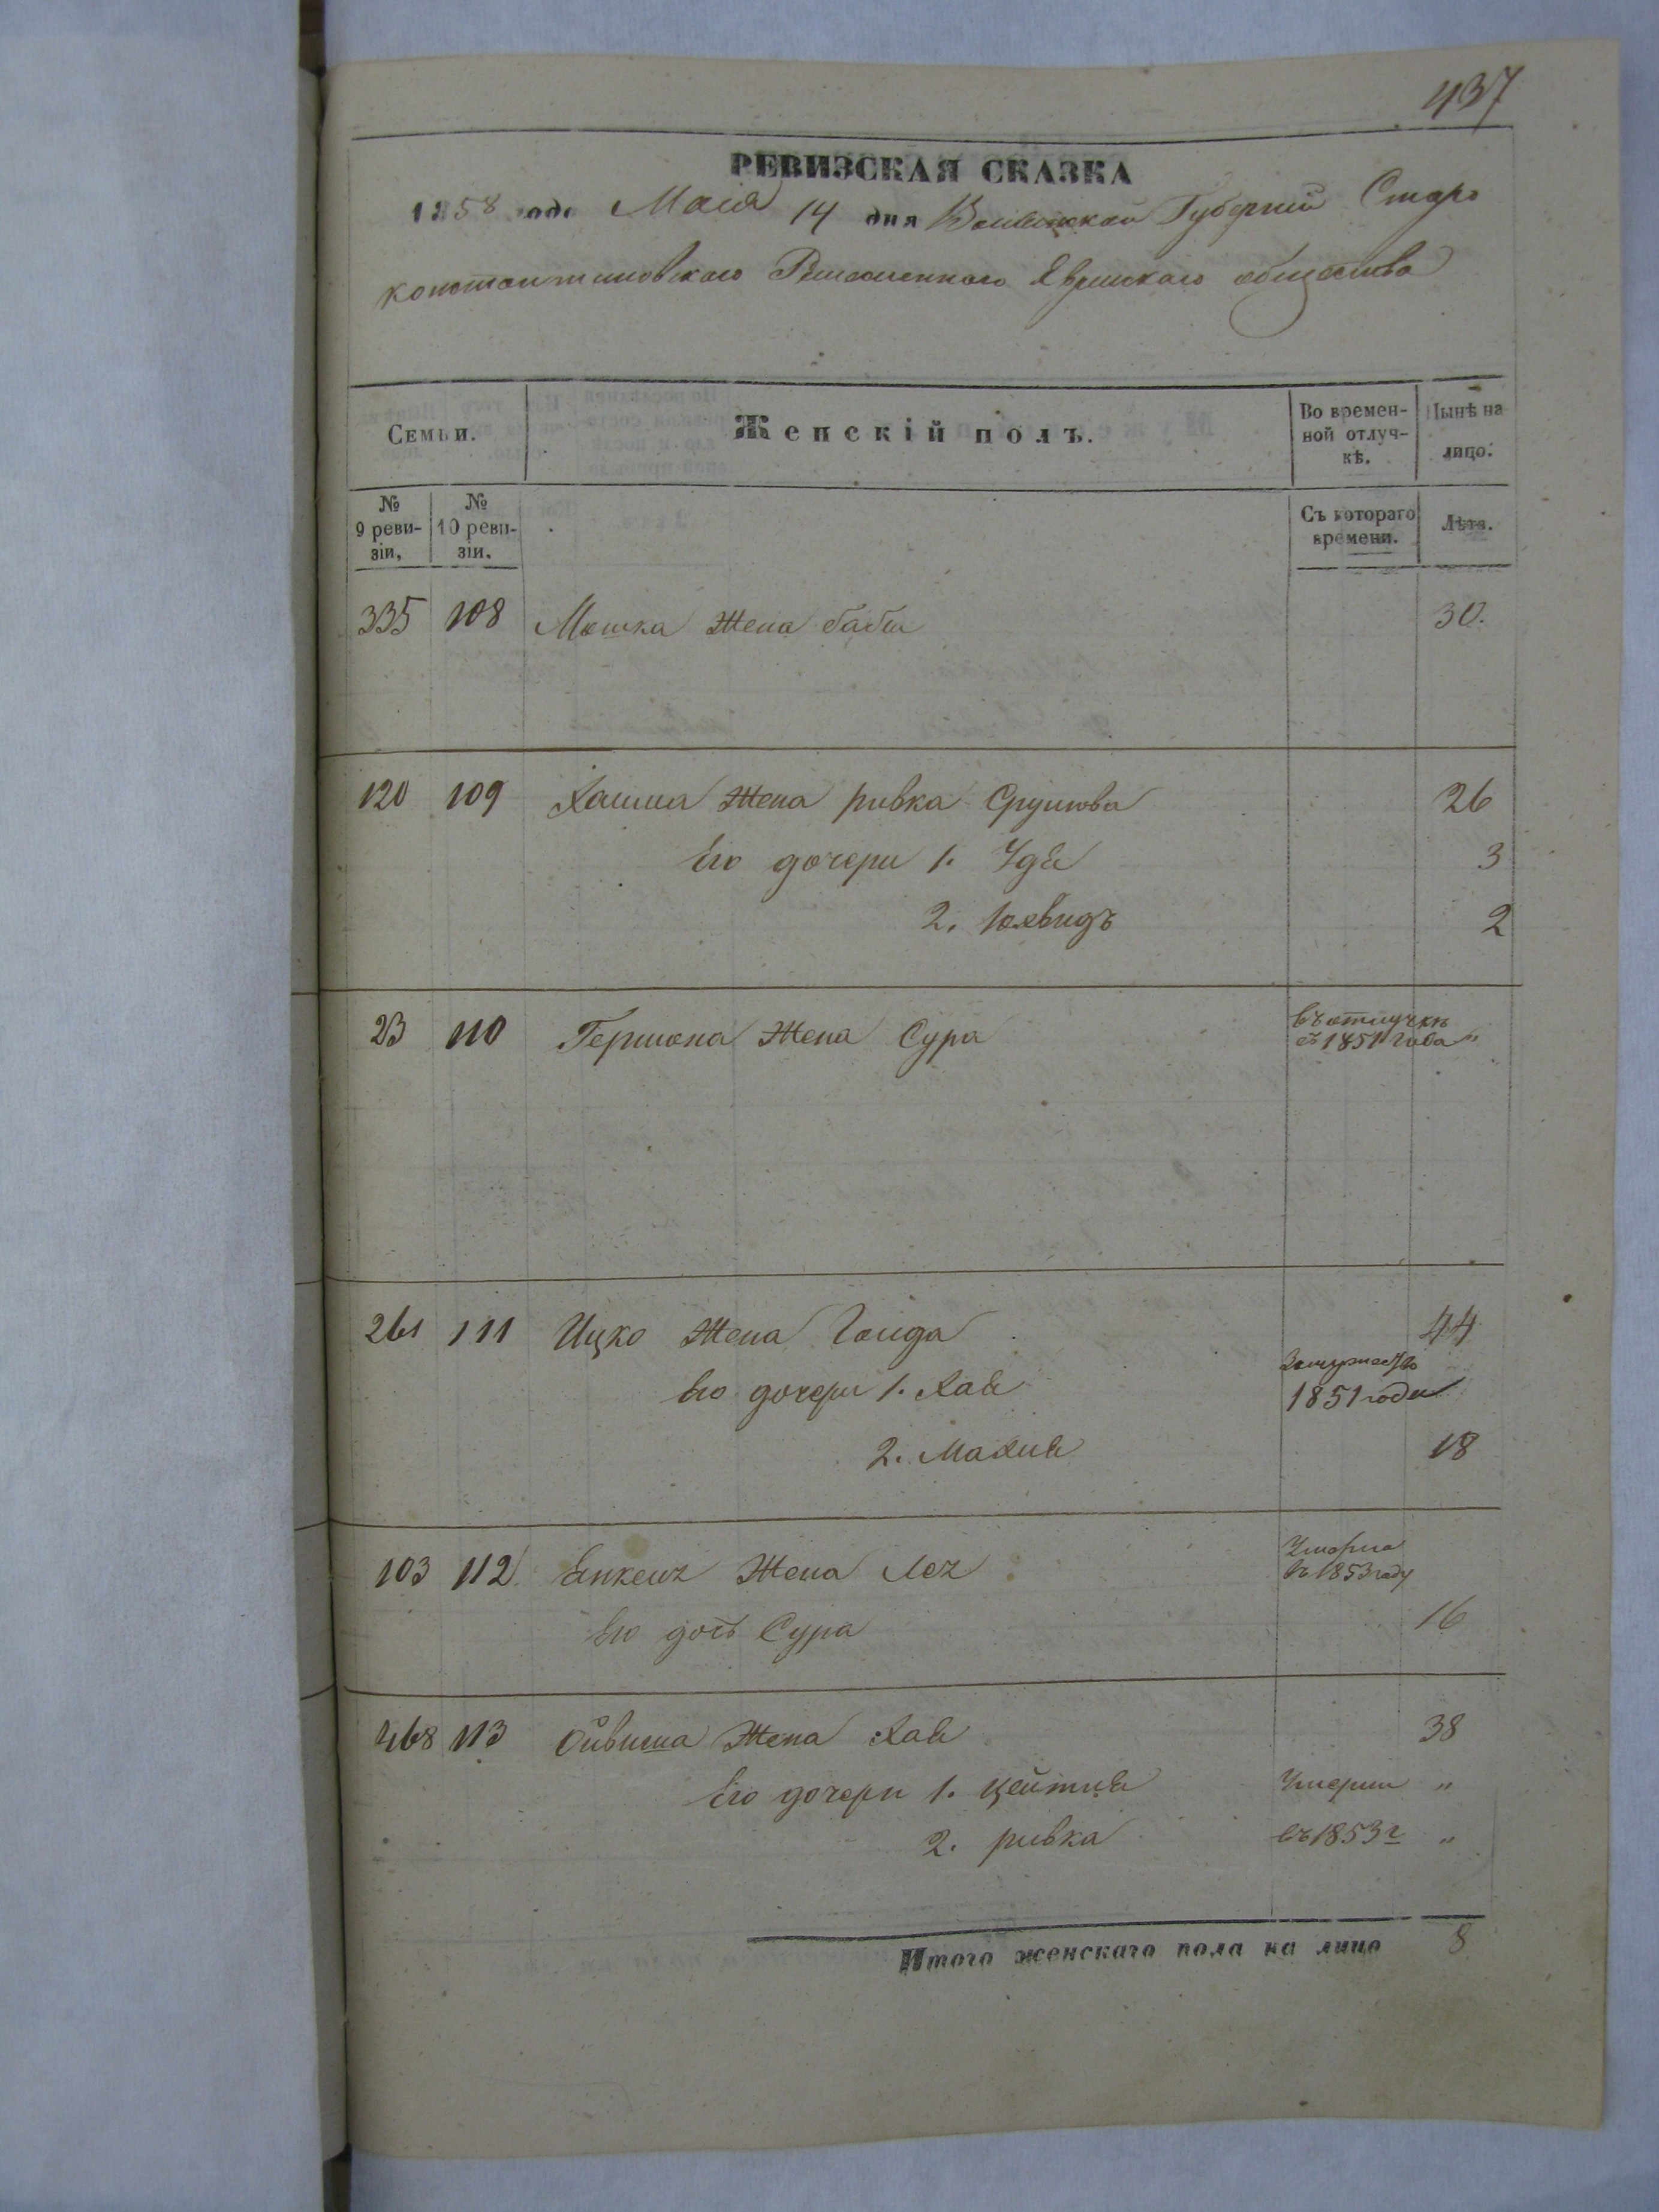 437
РЕВИЗСКАЯ СКАЗКА
1858 года Маія 14 дня Волынской Губерніи Старо
константиновскаго Ремесленнаго Еврейскаго общества
Семьи. Женскій полъ. Во времен- Нынѣ на
ной отлуч- лицо.
кѣ.
№ № Съ котораго Лѣта.
9 реви- 10 реви- времени.
зіи, зіи.
335 108 Мошка Жена баба 30.
120 109 Хаима Жена ривка Срулова 26
Его дочери 1. Удя 3
2. Юхвидъ 2
23 110 Гершона Жена Сура въ отлучкѣ
съ 1851 года "
261 111 Ицко Жена Голда 44
Его дочери 1. Хая Замужествѣ
1851 года
2. Малия 18
103 112 Янкеля Жена Лея Умерла
въ 1853 году
Его дочь Сура 16
468 113 Ойвиша Жена Хая 38
Его дочери 1. цейтля Умерли "
2. ривка въ 1853 г "
Итого женскаго пола на лицо 8